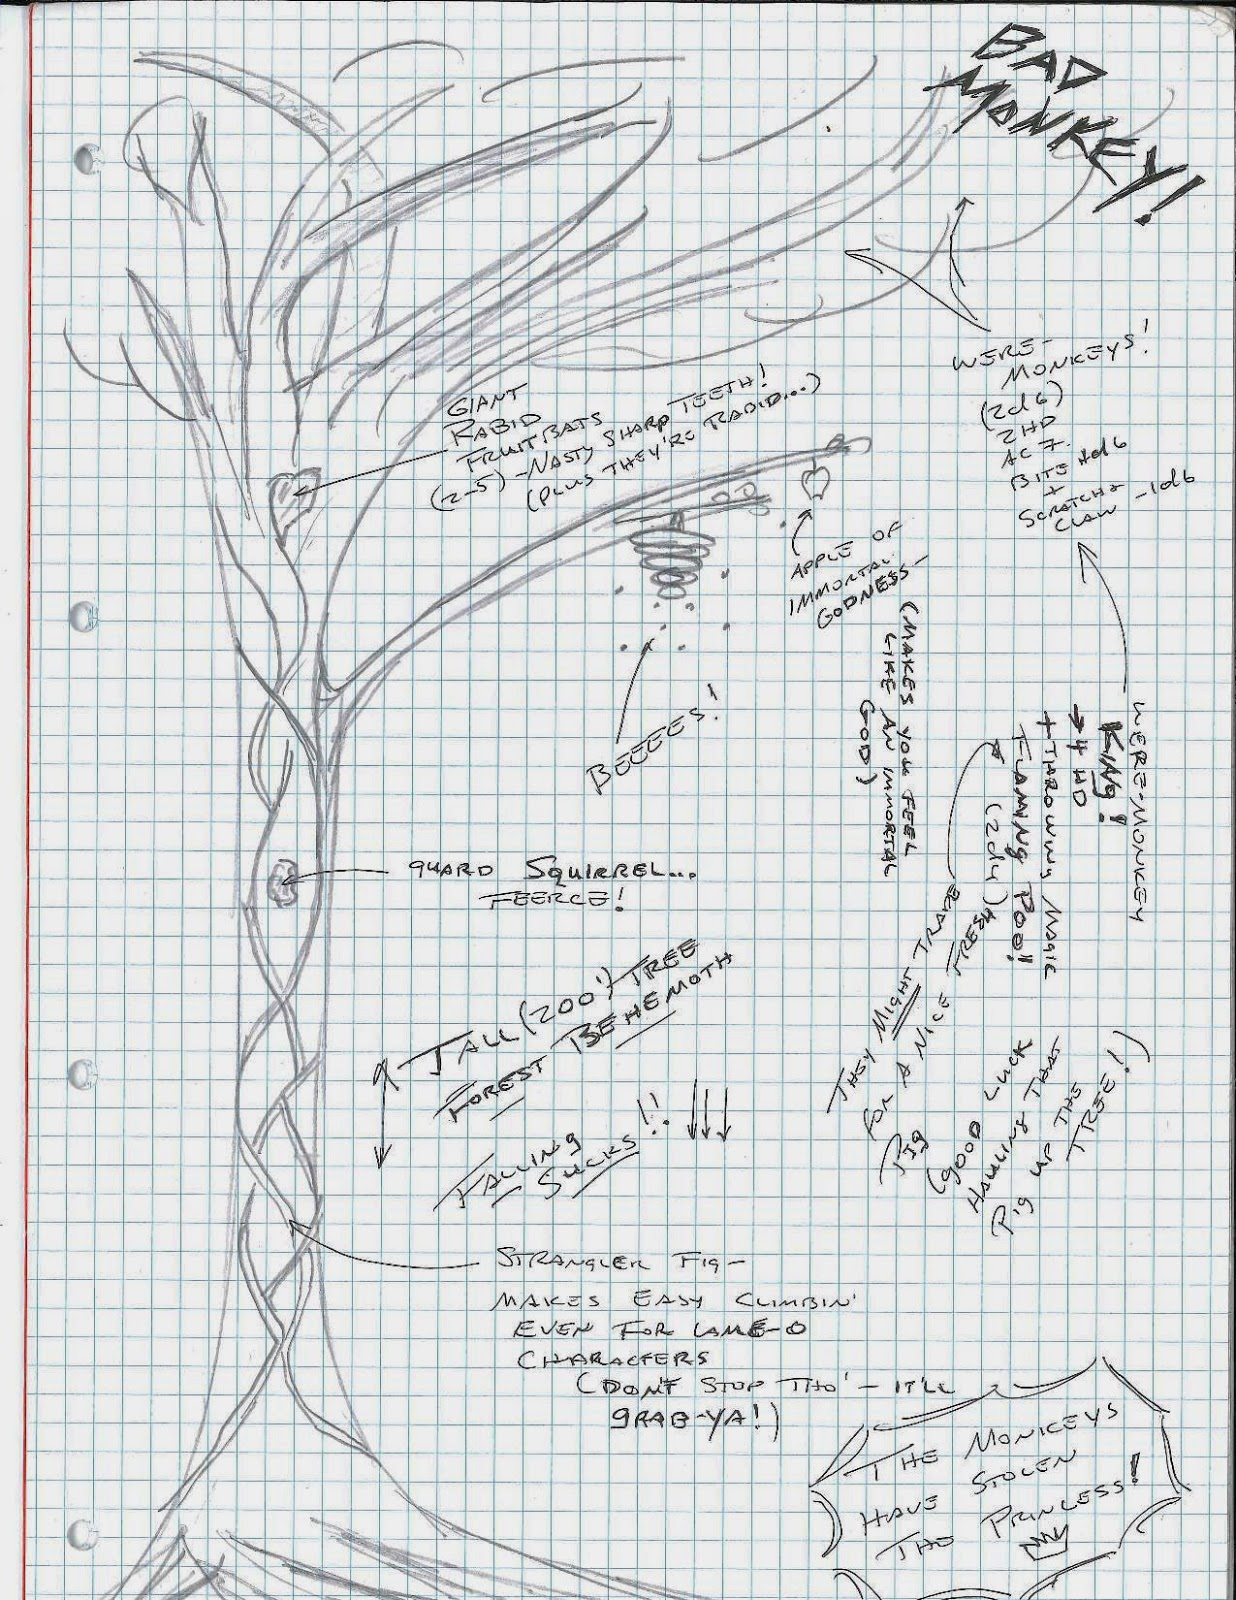 BAD
MONKEY!
WERE-
MONKEYS!
(2d6)
2HD
AC 7
BITE 1d6
+
SCRATCHY
CLAW -1d6
GIANT
RABID
FRUITBATS
(2-5) -NASTY SHARP TEETH!
(PLUS THEY'RE RABID...)
APPLE OF
IMMORTAL
GODNESS-
(MAKES YOU FEEL
LIKE AN IMMORTAL
GOD)
BEEEEES!
WERE-MONKEY
KING!
→ 4 HD
+ THROWING MAGIC
FLAMING POO!!
(2d4)
GUARD SQUIRREL...
FEERCE!
THEY MIGHT TRADE
FOR A NICE FRESH
PIG
(GOOD LUCK
HAULING THAT
PIG UP THE
TREE!)
TALL (200') TREE
FOREST BEHEMOTH
FALLING
SUCKS!!
STRANGLER FIG-
MAKES EASY CLIMBIN'
EVEN FOR LAME-O
CHARACTERS
(DON'T STOP THO' - IT'LL
GRAB-YA!)
THE MONKEYS
HAVE STOLEN
THE PRINCESS!